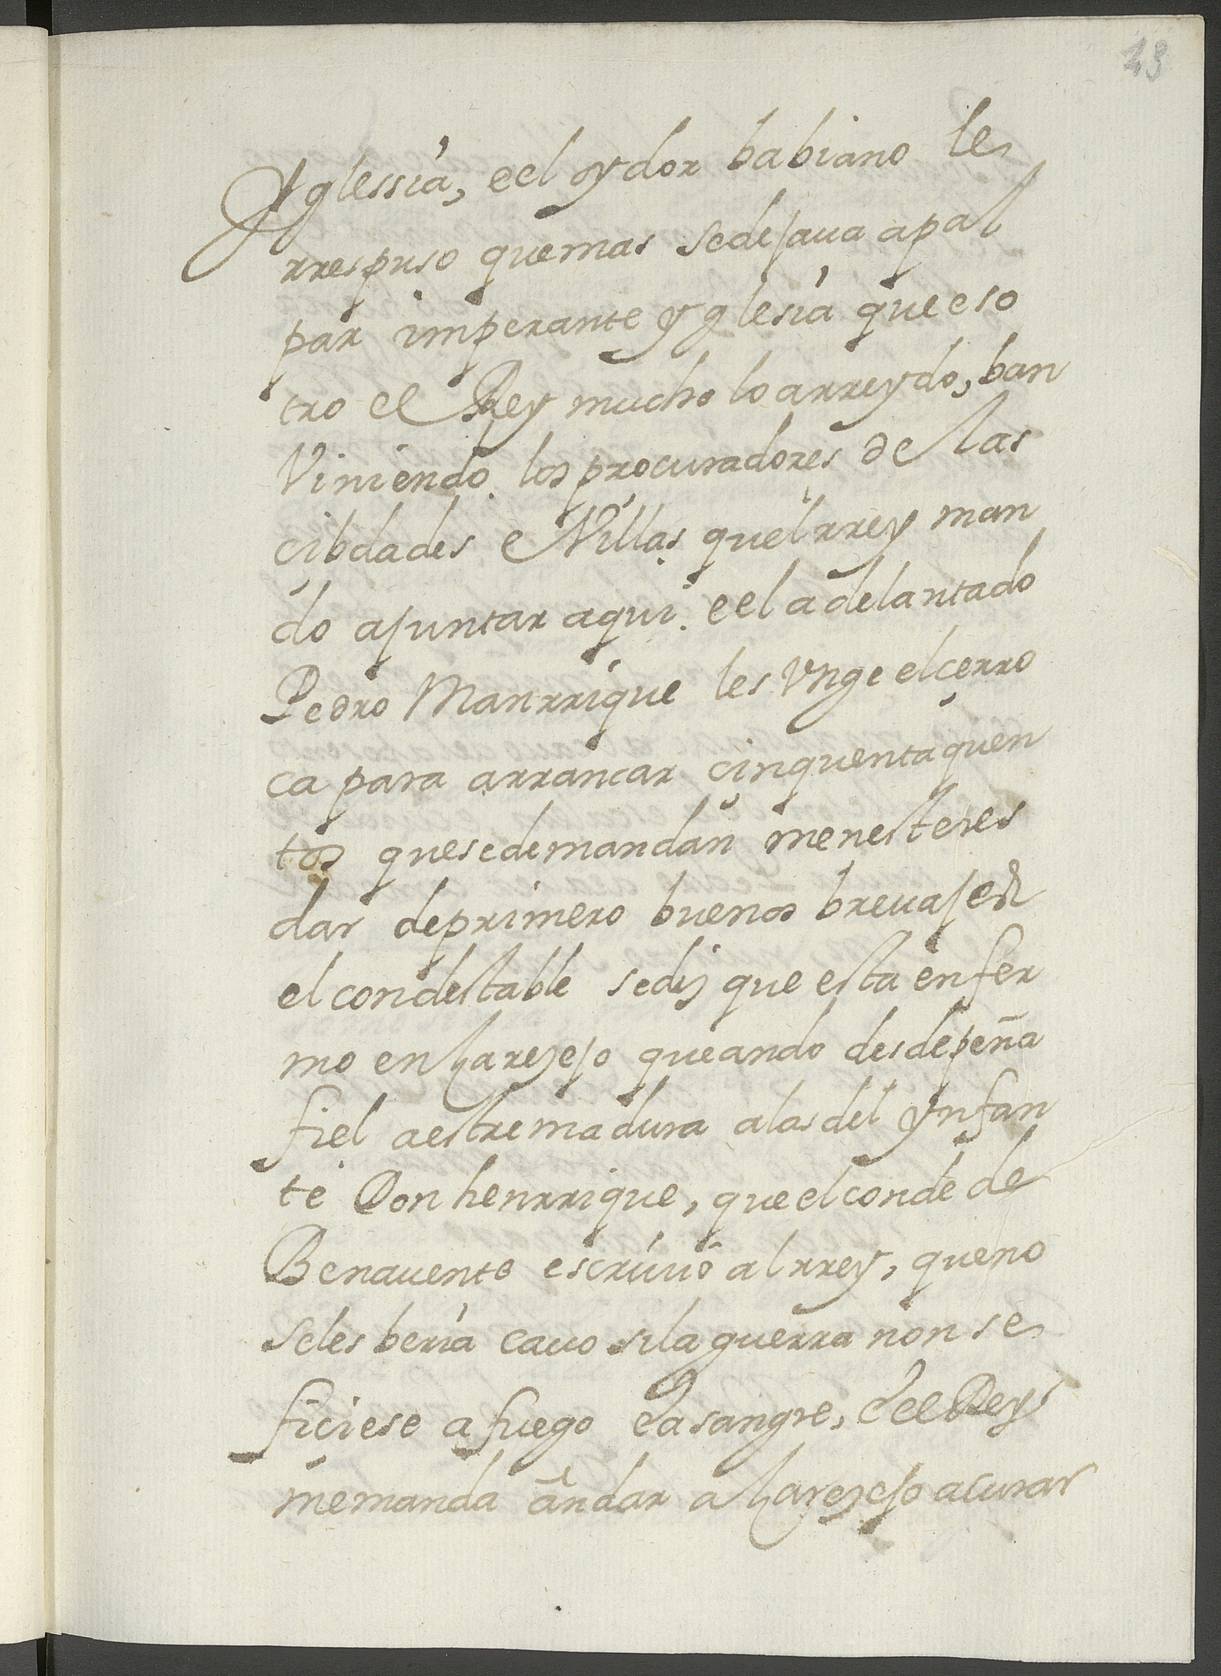 23
Yglessia, e el oydor babiano le
rrespuso que mas se dejaua apal
par imperante yglesia que eso
tro el Rey mucho lo a rreydo, ban
Viniendo los procuradores de las
cibdades e Villas quel rrey man
do ajuntar aqui. e el adelantado
Pedro Manrrique les Vnge el çerro
ca para arrancar çinquenta quen
tos que se demandan menesteres
dar de primero buenos breuajes
el condestable se diz que esta enfer
mo en que ando desde peña
fiel a estremadura a las del ynfan
te Don henrrique, que el conde de
Benauente escriuio al rrey, que no
se les beria cauo si la guerra non se
ficiese a fuego e a sangre, e el Rey
me manda andar a a curar